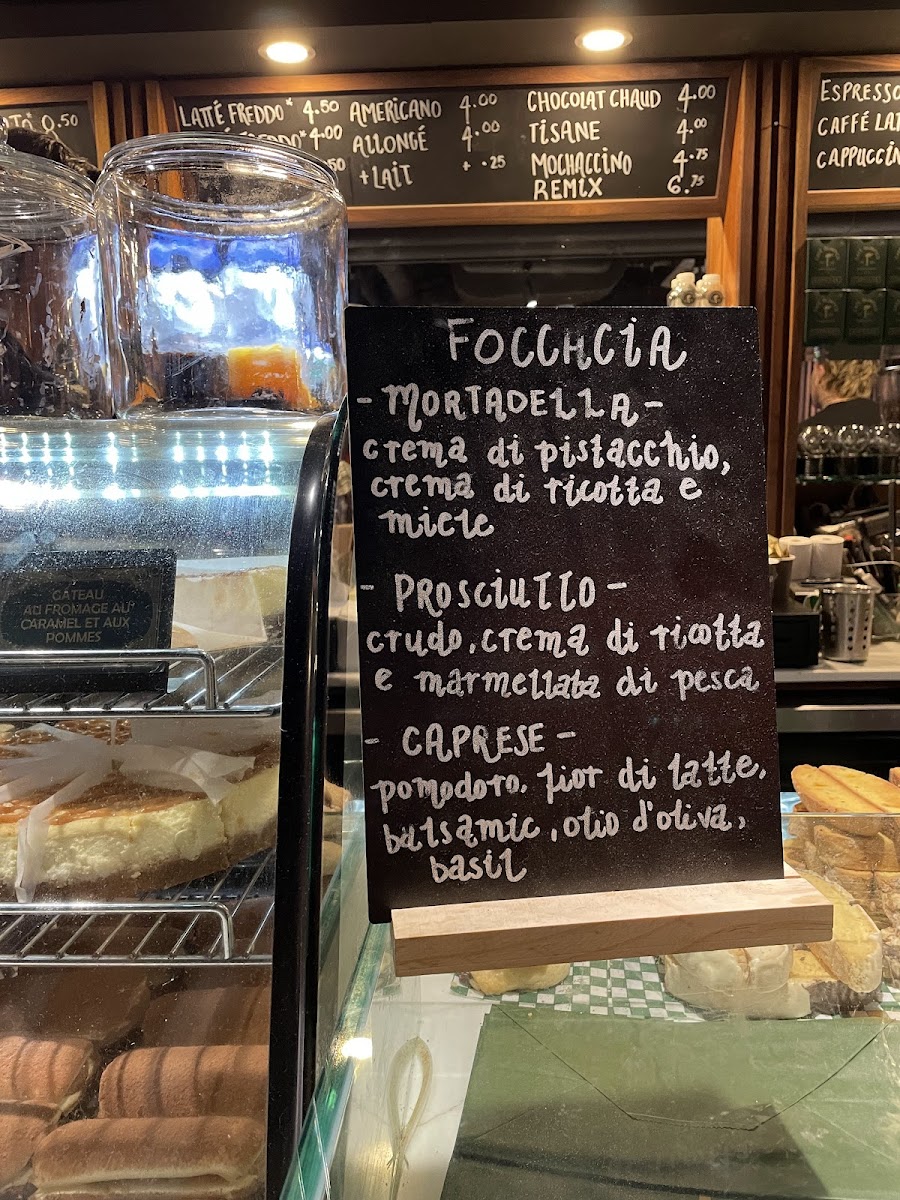 LATTÉ FREDDO* 4.50
FREDDO* 4.00
50
AMERICANO 4.00
ALLONGÉ 4.00
+ LAIT + .25
CHOCOLAT CHAUD 4.00
TISANE 4.00
MOCHACCINO 4.75
REMIX 6.75
0.50
ESPRESSO
CAFFÉ LAT
CAPPUCCIN
FOCCACIA
- MORTADELLA -
crema di pistacchio,
crema di ricotta e
miele
- PROSCIUTTO -
crudo, crema di ricotta
e marmellata di pesca
- CAPRESE -
pomodoro, fior di latte,
balsamic, olio d'oliva,
basil
GÂTEAU
AU FROMAGE AU
CARAMEL ET AUX
POMMES